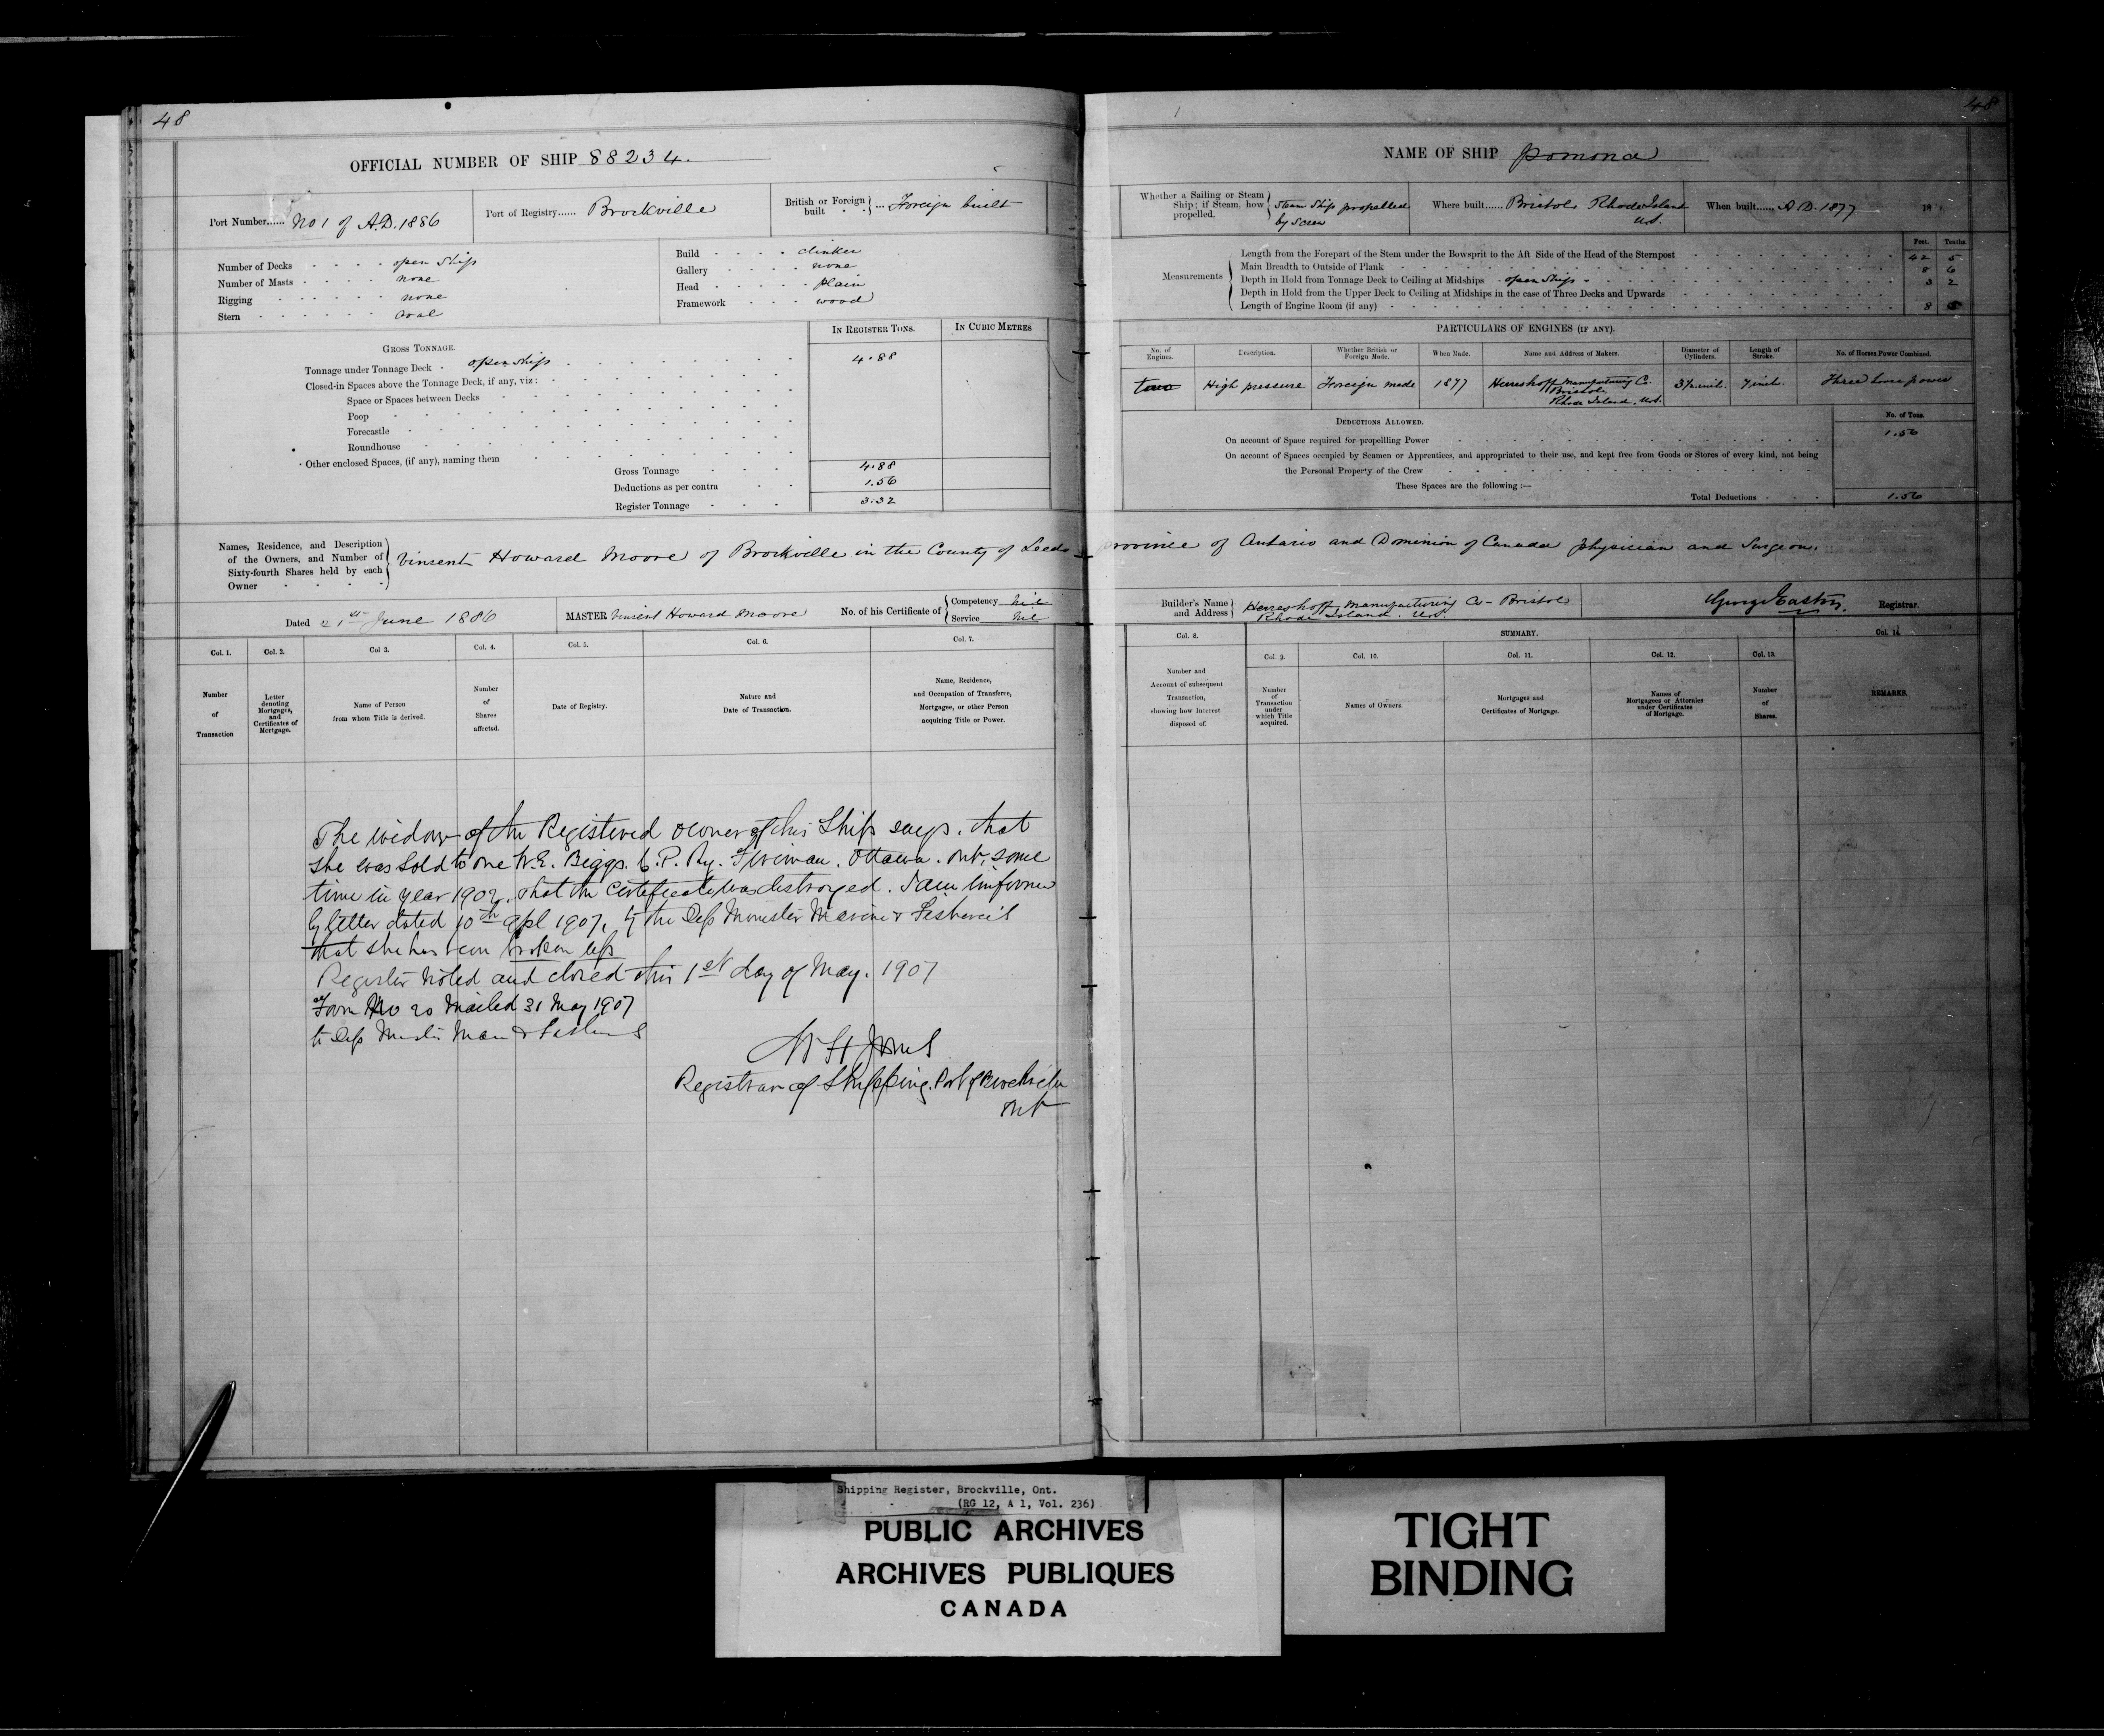 48
OFFICIAL NUMBER OF SHIP 88234.
Port Number...... No 1 of A.D. 1886
Port of Registry...... Brockville
British or Foreign built ... Foreign built
Number of Decks open Ship
Number of Masts none
Rigging none
Stern oval
Build clinker
Gallery none
Head plain
Framework wood
GROSS TONNAGE.
IN REGISTER TONS.
IN CUBIC METRES
Tonnage under Tonnage Deck open ship 4.88
Closed-in Spaces above the Tonnage Deck, if any, viz:
Space or Spaces between Decks
Poop
Forecastle
Roundhouse
Other enclosed Spaces, (if any), naming them
Gross Tonnage 4.88
Deductions as per contra 1.56
Register Tonnage 3.32
Names, Residence, and Description
of the Owners, and Number of
Sixty-fourth Shares held by each
Owner
Vinsent Howard Moore of Brockville in the County of Leeds
Dated 21st June 1886
MASTER Vinsent Howard Moore
No. of his Certificate of
Competency Nil
Service Nil
Col. 1.
Number of Transaction
Col. 2.
Letter denoting Mortgages, and Certificates of Mortgage.
Col 3.
Name of Person from whom Title is derived.
Col. 4.
Number of Shares affected.
Col. 5.
Date of Registry.
Col. 6.
Nature and Date of Transaction.
Col. 7.
Name, Residence, and Occupation of Transferee, Mortgagee, or other Person acquiring Title or Power.
The widow of the Registered owner of this Ship says. that
she was sold to one W.E. Biggs. C.P. Ry. Fireman. Ottawa. Ont, some
time in year 1902. that the certificate was destroyed. I am informed
by letter dated 10th Apl 1907, by the Dep Minister Marine & Fisheries
that she has been broken up
Register noted and closed this 1st day of May. 1907
Form No 20 Mailed 31 May 1907
to Dep Minister Mar & Fisheries
W H Jones
Registrar of Shipping. Port of Brockville
Ont
48
NAME OF SHIP Pomona
Whether a Sailing or Steam Ship; if Steam, how propelled.
Steam Ship propelled by Screw
Where built...... Bristol Rhode Island U.S.
When built...... A D. 1877
18
Measurements
Feet. Tenths.
Length from the Forepart of the Stem under the Bowsprit to the Aft Side of the Head of the Sternpost 42 5
Main Breadth to Outside of Plank 8 6
Depth in Hold from Tonnage Deck to Ceiling at Midships open Ship 3 2
Depth in Hold from the Upper Deck to Ceiling at Midships in the case of Three Decks and Upwards
Length of Engine Room (if any) 8 5
PARTICULARS OF ENGINES (IF ANY).
No. of Engines.
Description.
Whether British or Foreign Made.
When Made.
Name and Address of Makers.
Diameter of Cylinders.
Length of Stroke.
No. of Horses Power Combined.
two
High pressure
Foreign made
1877
Herreshoff Manufacturing Co. Bristol, Rhode Island, U.S.
3½ inch.
7 inch.
Three horse power
DEDUCTIONS ALLOWED.
No. of Tons.
On account of Space required for propelling Power 1.56
On account of Spaces occupied by Seamen or Apprentices, and appropriated to their use, and kept free from Goods or Stores of every kind, not being
the Personal Property of the Crew
These Spaces are the following :—
Total Deductions 1.56
Province of Ontario and Dominion of Canada physician and Surgeon.
Builder's Name and Address
Herreshoff Manufacturing Co - Bristol
Rhode Island. U.S.
George Easton. Registrar.
Col. 8.
Number and Account of subsequent Transaction, showing how Interest disposed of.
SUMMARY.
Col. 9.
Number of Transaction under which Title acquired.
Col. 10.
Names of Owners.
Col. 11.
Mortgages and Certificates of Mortgage.
Col. 12.
Names of Mortgagees or Attornies under Certificates of Mortgage.
Col. 13.
Number of Shares.
Col. 14.
REMARKS.
Shipping Register, Brockville, Ont.
(RG 12, A 1, Vol. 236)
PUBLIC ARCHIVES
ARCHIVES PUBLIQUES
CANADA
TIGHT
BINDING